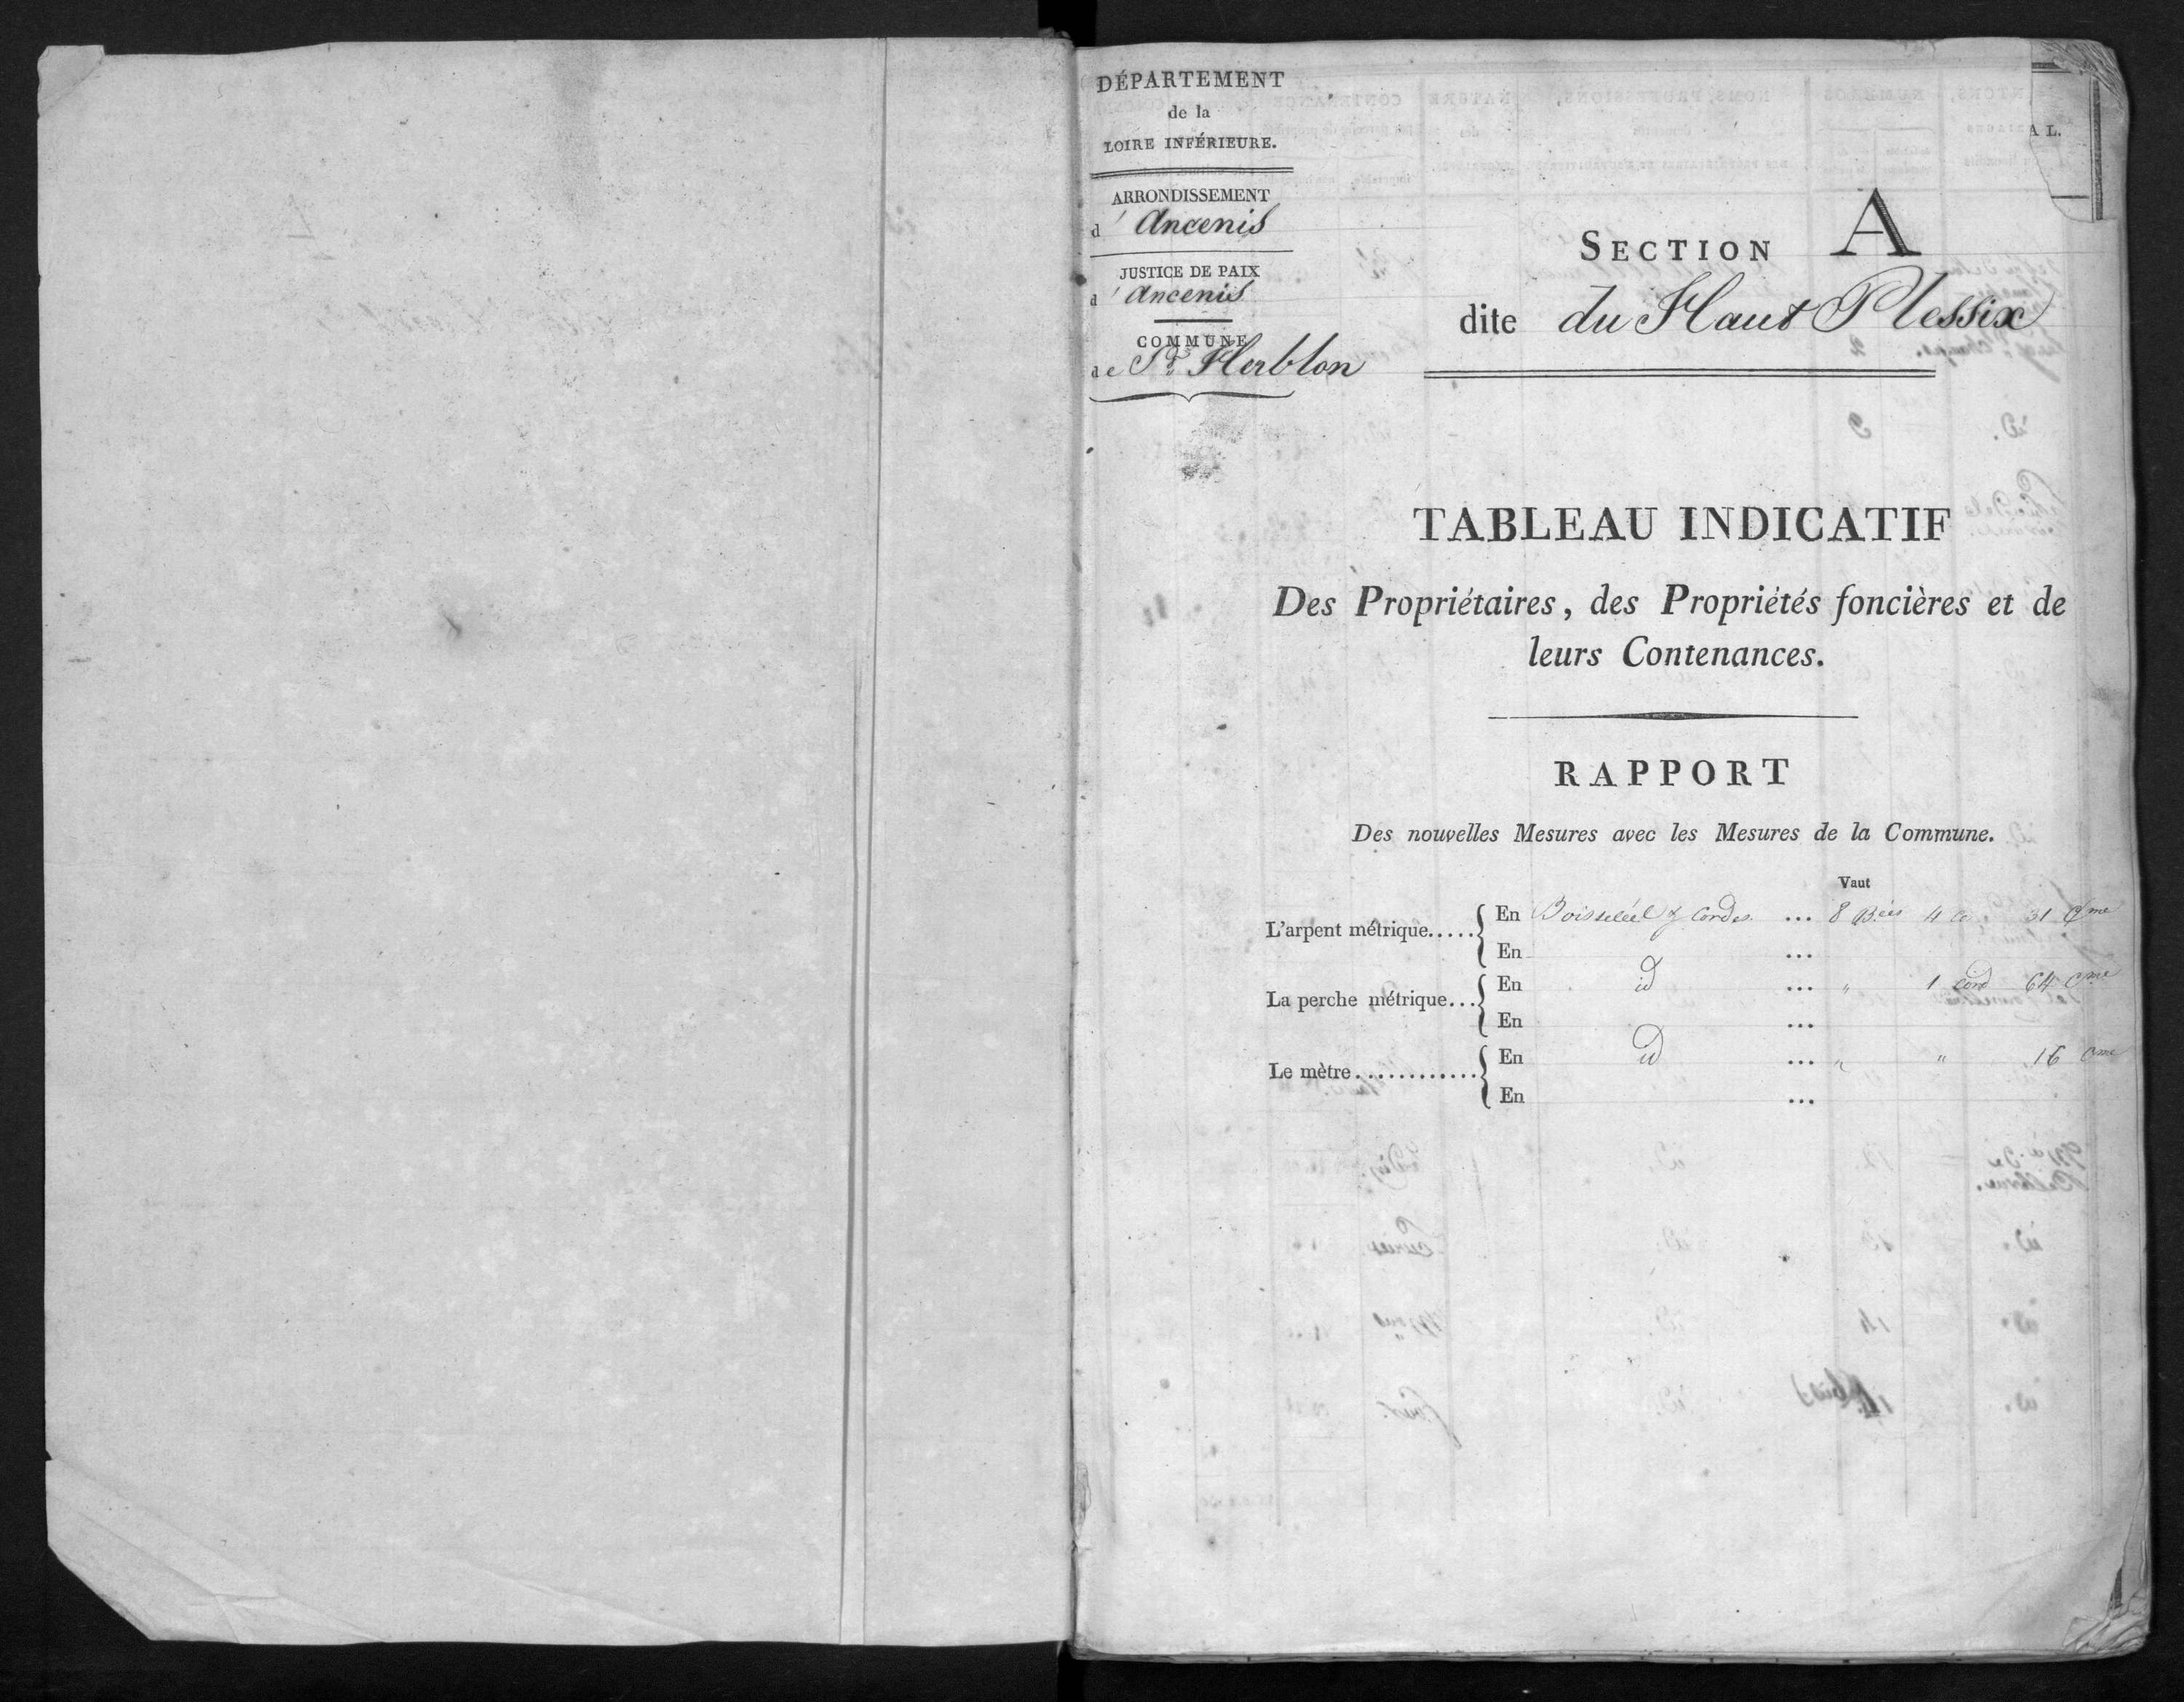 DÉPARTEMENT
de la
LOIRE INFÉRIEURE.
ARRONDISSEMENT
d'Ancenis
JUSTICE DE PAIX
d'Ancenis
COMMUNE
de St. Herblon
SECTION A
dite du Haut Plessix
AL.
TABLEAU INDICATIF
Des Propriétaires, des Propriétés foncières et de
leurs Contenances.
RAPPORT
Des nouvelles Mesures avec les Mesures de la Commune.
Vaut
L'arpent métrique..... En & Cordes ... 8 4 31 Cme
En ...
La perche métrique... En id ... " 1 Cord 64 Cme
En ...
Le mètre............ En id ... " " 16 Cme
En ...